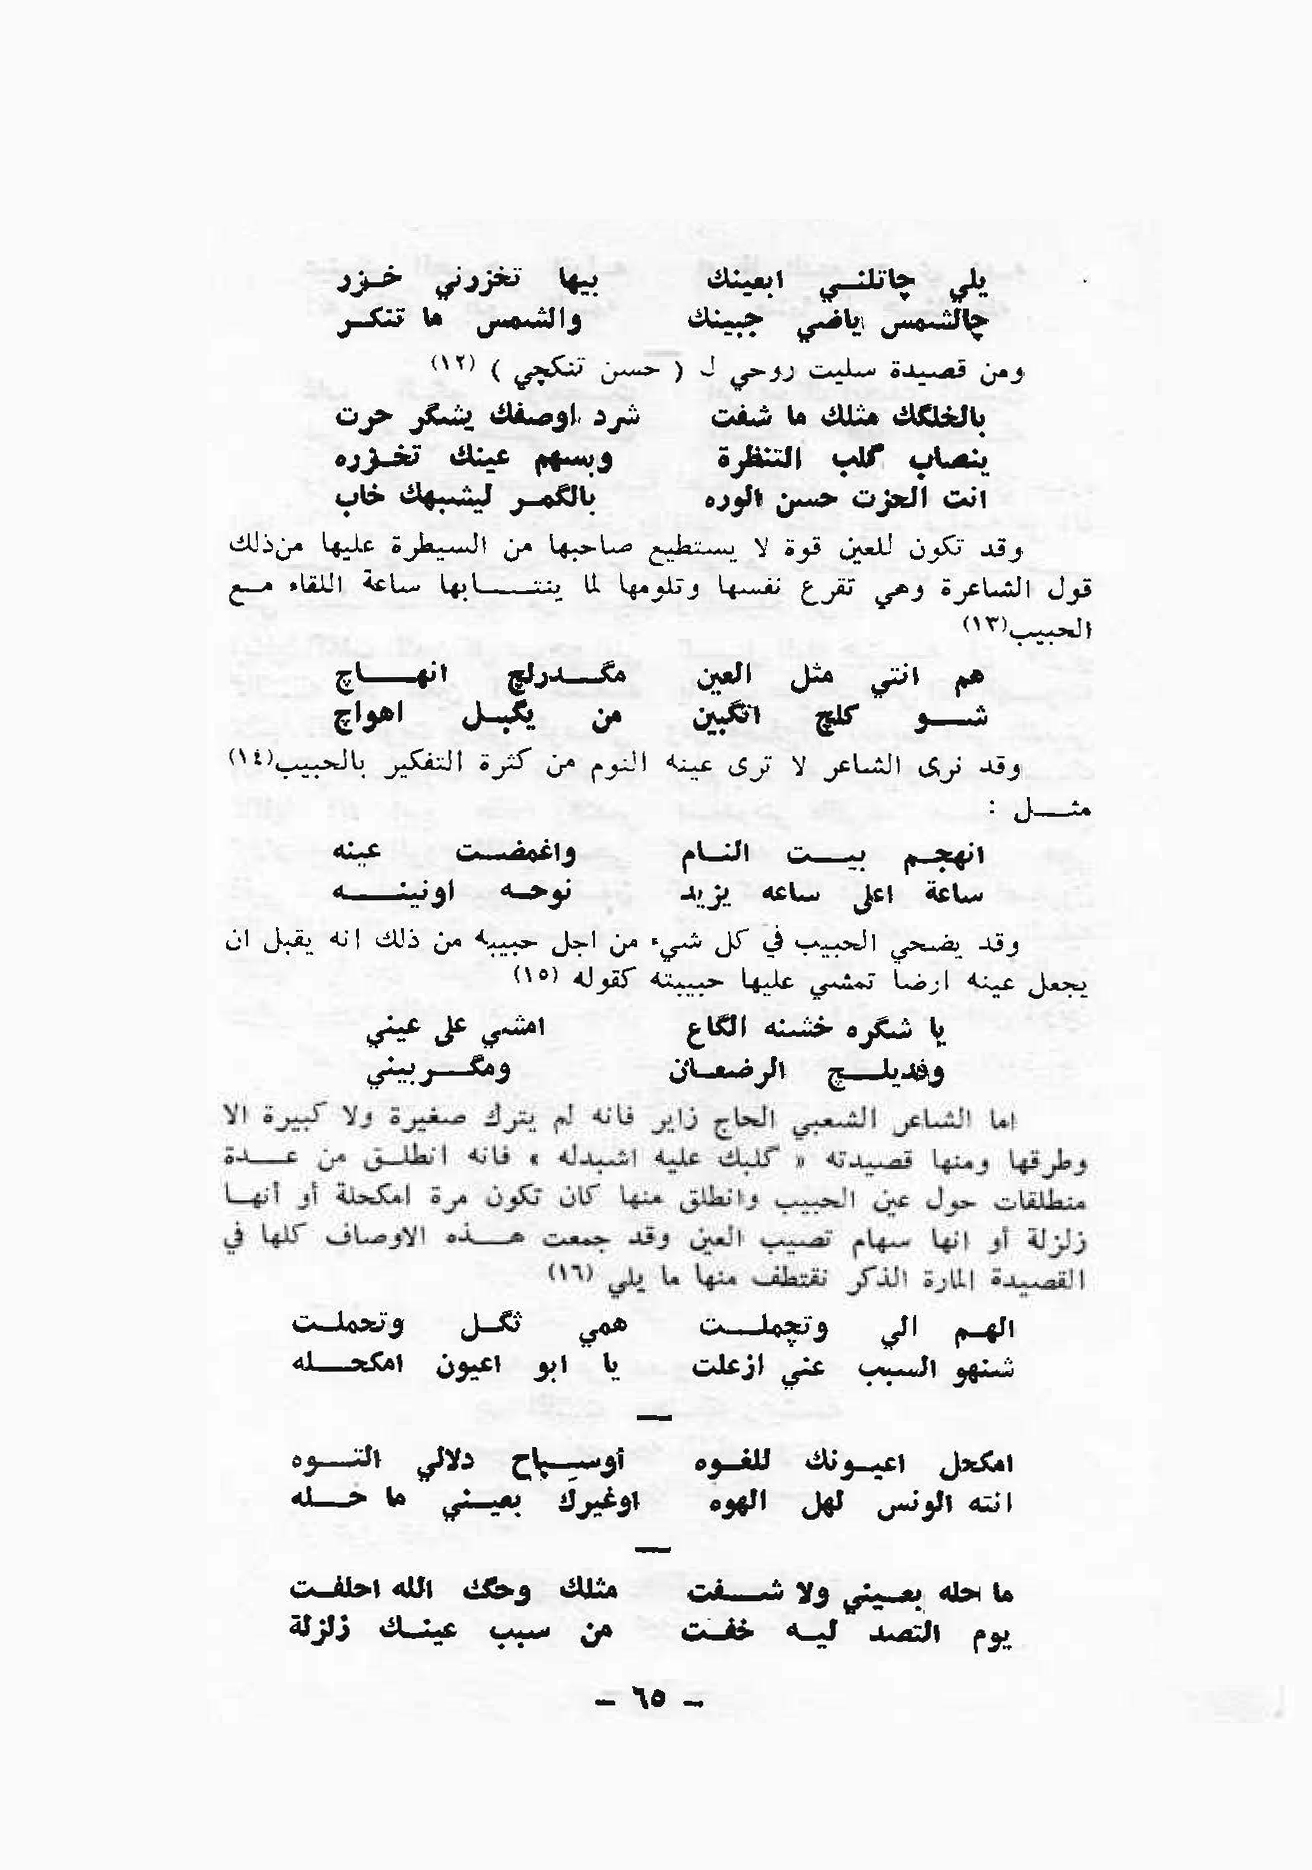 يلي چاتلني ابعينك بيها تخزرني خزر
چالشمس ياضي جبينك والشمس ما تنكر
ومن قصيدة سليت روحي لـ ( حسن تنكچي ) (١٢)
بالخلگك مثلك ما شفت شرد اوصفك يشگر حرت
ينصاب گلب التنظرة وبسهم عينك تخزره
انت الحزت حسن الوره بالگمر ليشبهك خاب
وقد تكون للعين قوة لا يستطيع صاحبها من السيطرة عليها من ذلك
قول الشاعرة وهي تقرع نفسها وتلومها لما ينتابها ساعة اللقاء مع
الحبيب(١٣)
هم انتي مثل العين مگدرلچ انهاچ
شو كلچ اتگبين من يگبل اهواچ
وقد نرى الشاعر لا ترى عينه النوم من كثرة التفكير بالحبيب(١٤)
مثل :
انهجم بيت النام واغمضت عينه
ساعة اعلى ساعه يزيد نوحه اونينه
وقد يضحي الحبيب في كل شيء من اجل حبيبه من ذلك انه يقبل ان
يجعل عينه ارضا تمشي عليها حبيبته كقوله (١٥)
يا شگره خشنه الگاع امشي على عيني
وفديلچ الرضعان ومگربيني
اما الشاعر الشعبي الحاج زاير فانه لم يترك صغيرة ولا كبيرة الا
وطرقها ومنها قصيدته « گلبك عليه اشبدله » فانه انطلق من عدة
منطلقات حول عين الحبيب وانطلق منها كان تكون مرة امكحلة أو أنها
زلزلة أو انها سهام تصيب العين وقد جمعت هذه الاوصاف كلها في
القصيدة المارة الذكر نقتطف منها ما يلي (١٦)
الهم الي وتچملت همي ثگل وتحملت
شنهو السبب عني ازعلت يا ابو اعيون امكحله
امكحل اعيونك للغوه أوسياح دلالي التوه
انته الونس لهل الهوه اوغيرك بعيني ما حله
ما حله بعيني ولا شفت مثلك وحگك الله احلفت
يوم التصد ليه خفت من سبب عينك زلزلة
– ٦٥ –